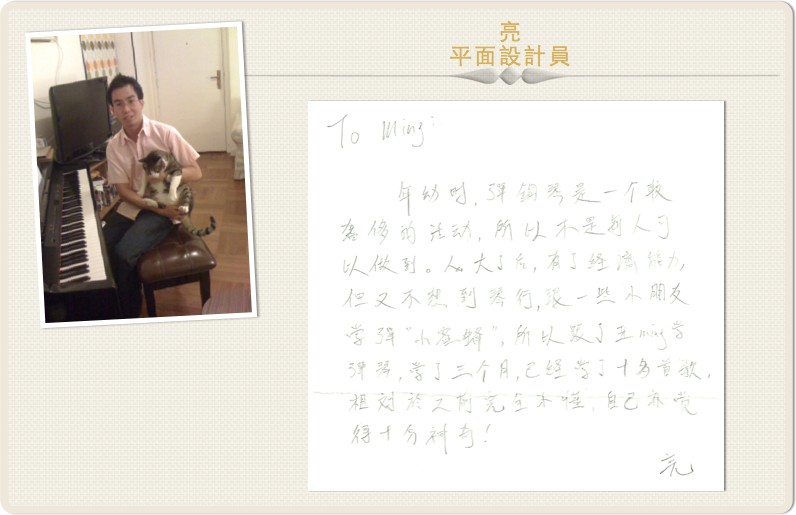 亮
平面設計員
To Ming:
年幼时，彈鋼琴是一个較
奢侈的活动，所以不是每人可
以做到。人大了后，有了經濟能力，
但又不想到琴行，跟一些小朋友
学彈"小蜜蜂"，所以跟了 ming 学
彈琴，学了三个月，已經学了十多首歌，
相对於之前完全不懂，自己亦覺
得十分神奇！
亮